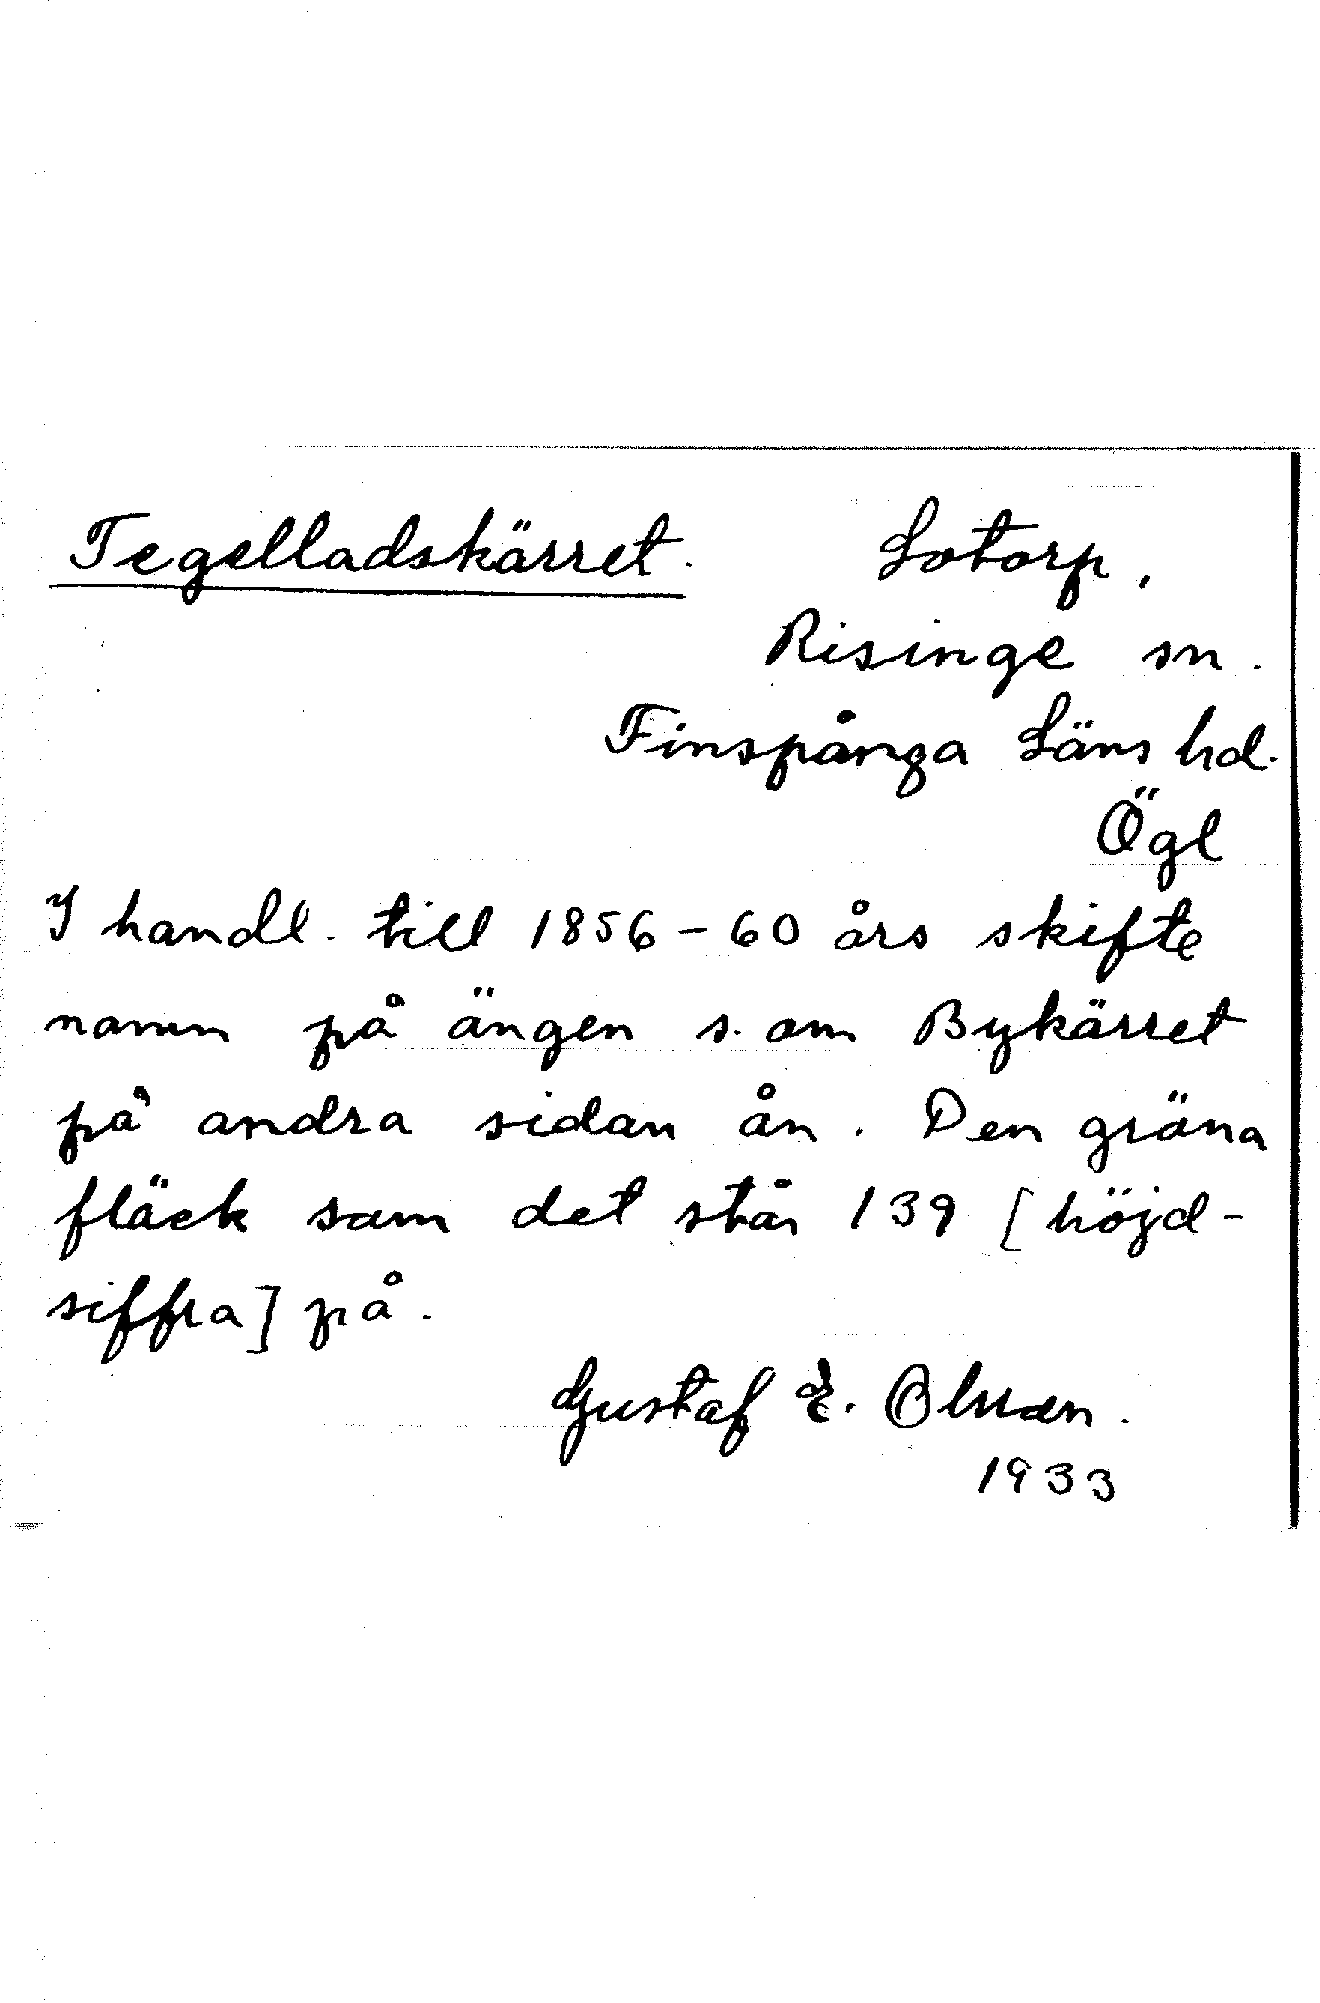 Tegelladskärret. Lotorp,
Risinge sn.
Finspånga Läns hd.
Ögl
I handl. till 1856-60 års skifte
namn på ängen s. om Bykärret
på andra sidan ån. Den gröna
fläck som det står 139 [höjd-
siffra] på.
Gustaf E.
1933